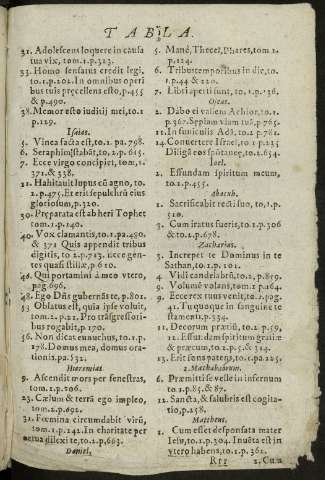 TABLA.
31. Adolescens loquere in causa
tua vix, tom.1.p.323.
33. Homo sensatus credit legi,
to.1.p.202. In omnibus operi
bus tuis præcellens esto, p.455
& p.490.
38. Memor esto iudicij mei, to.1
p.129.
Isaias.
5. Vinea facta est, to.1. pa.798.
6. Seraphin stabāt, to.2.p.615.
7. Ecce virgo concipiet, tom,1.
371.& 338.
21. Habitauit lupus cū agno, to.
2.p.475. Et erit sepulchrū eius
gloriosum, p.320.
30. Preparata est ab heri Tophet
tom.1.p.140.
40. Vox clamantis, to.1.pa.490.
& 371 Quis appendit tribus
digitis, to 2.p.713. Ecce gen-
tes quasi stilla, p 610.
46. Qui portamini à meo vtero,
pag.696.
48. Ego Dñs gubernās te, p.801.
53 Oblatus est, quia ipse voluit,
tom.2.p.22. Pro trāsgressori-
bus rogabit, p 170.
56. Non dicat eunuchus, to.1.p.
178. Domus mea, domus ora-
tionis.pa.531.
Hieremias
9. Ascendit mors per fenestras,
tom.1.p.206.
23. Cælum & terrā ego impleo,
tom.2.p.692.
31. Fœmina circumdabit virū,
tom.1.p.242. In charitate per
petua dilexi te, to.2.p.663.
Daniel,
5. Mane, Thecel, Phares, tom 1.
p.124.
6. Tribus temporibus in die, to.
1.p.44 & 220.
7. Libri aperti sunt, to.1.p.136.
Oseas.
2. Dabo ei vallem Achior, to.1
p.367. Sepiam viam tuā, p 765.
11. In funiculis Adā, to.2 p.781.
14. Conuertere Israel, to 1 p.235
Diligā eos spōtaneę, to.2.634.
Ioel.
2. Effundam spiritum meum,
to 2.p.455.
Abacuh.
1. Sacrificabit reti suo, to.1.p.
510.
3. Cum iratus fueris, to.1.p.306
& to.2.p.678.
Zacharias.
3. Increpet te Dominus in te
Sathan, to.2.p.101.
4. Vidi candelabrū, to.2, p.859.
9. Volumē volans, tom 1 p.164.
9. Ecce rex tuus venit, to.2.pag.
21. Tuquoque in sanguine te
stamenti, p.334.
11. Decorum prætiū, to.2 p.59,
12. Effundam spiritum gratiæ
& præcum, to.2.p.5. & 314.
13. Erit fons patens, to.1.pa 225.
2. Machabæorum.
6. Præmitti se velle in infernum
to 2.p.85.& 87.
12. Sancta, & salubris est cogita-
tio, p 258.
Mattheus.
1. Cum esset desponsata mater
Iesu, to.1.p.304. Inuēta est in
vtero habens, to.1.p.362.
Rr3 2. Cum